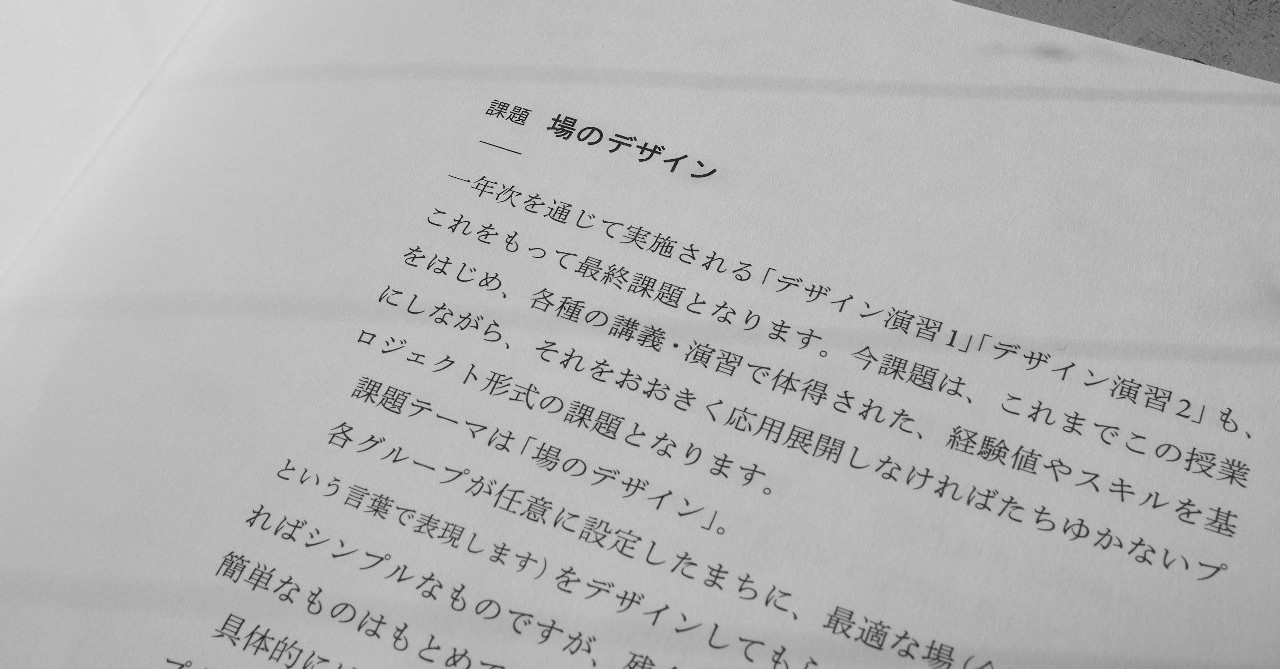 課題 場のデザイン
一年次を通じて実施される「デザイン演習1」「デザイン演習2」も、
これをもって最終課題となります。今課題は、これまでこの授業
をはじめ、各種の講義・演習で体得された、経験値やスキルを基
にしながら、それをおおきく応用展開しなければたちゆかないプ
ロジェクト形式の課題となります。
課題テーマは「場のデザイン」。
各グループが任意に設定したまちに、最適な場(
という言葉で表現します)をデザインしてもら
ればシンプルなものですが、
簡単なものはもとめて
具体的に